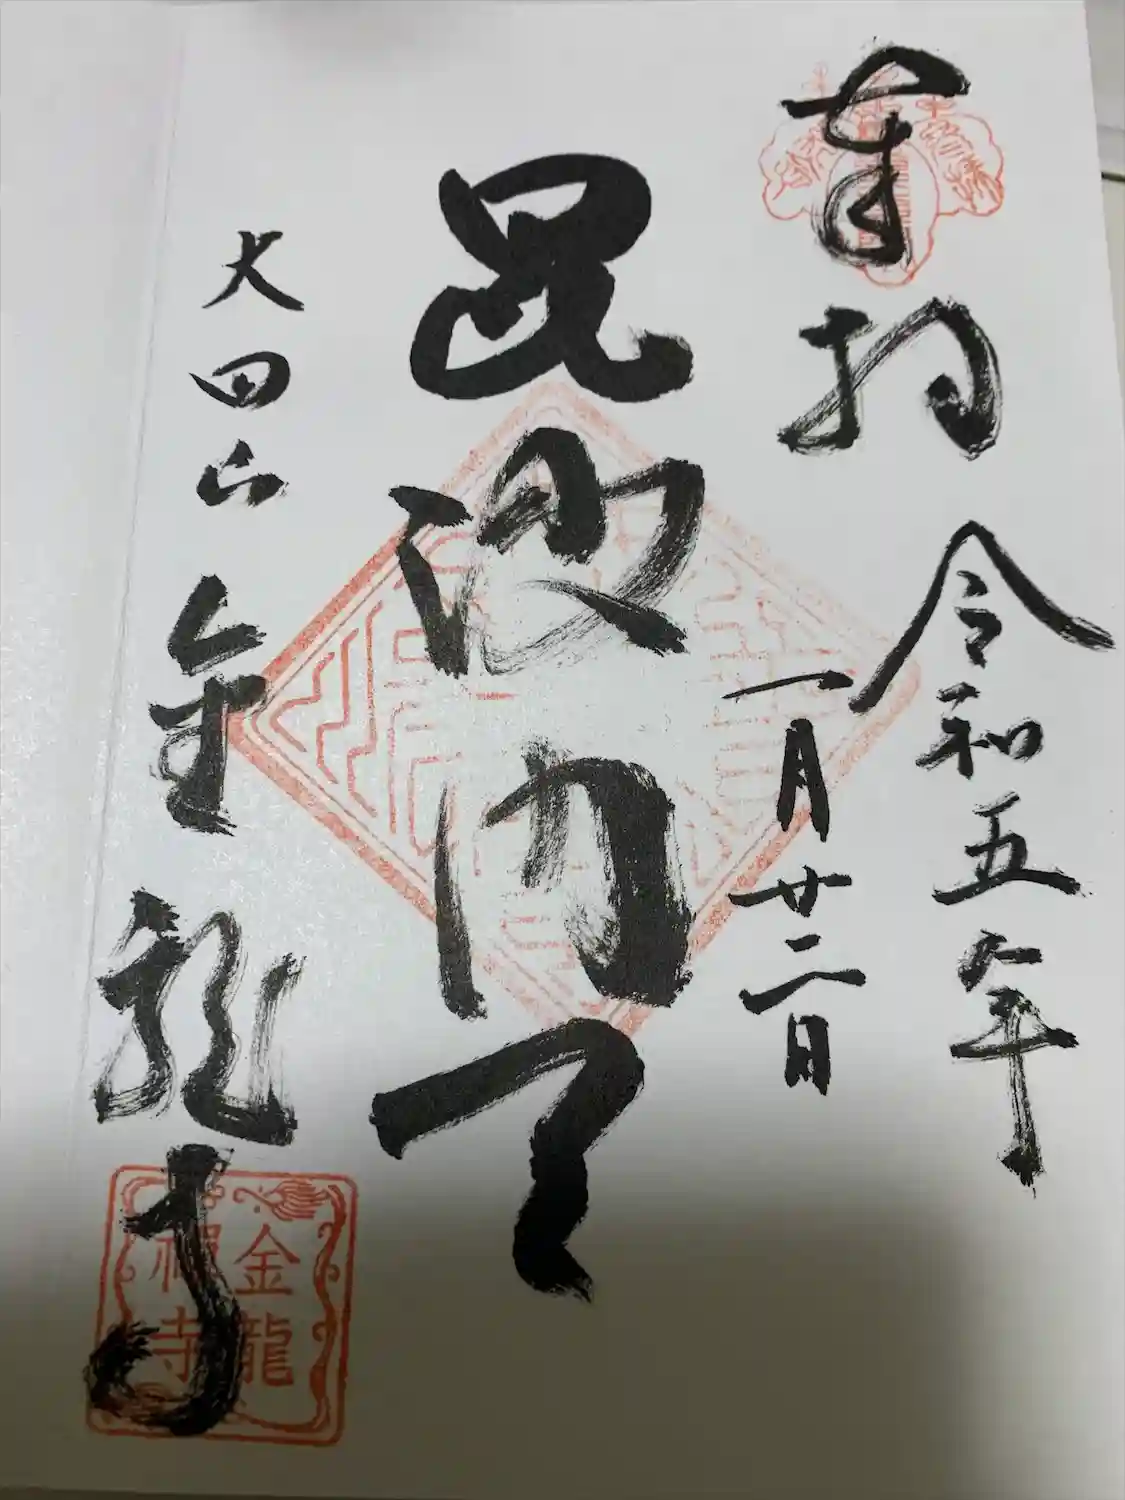 奉拝
令和五年
一月廿二日
毘沙門天
大田山
金龍寺
金龍
禅寺